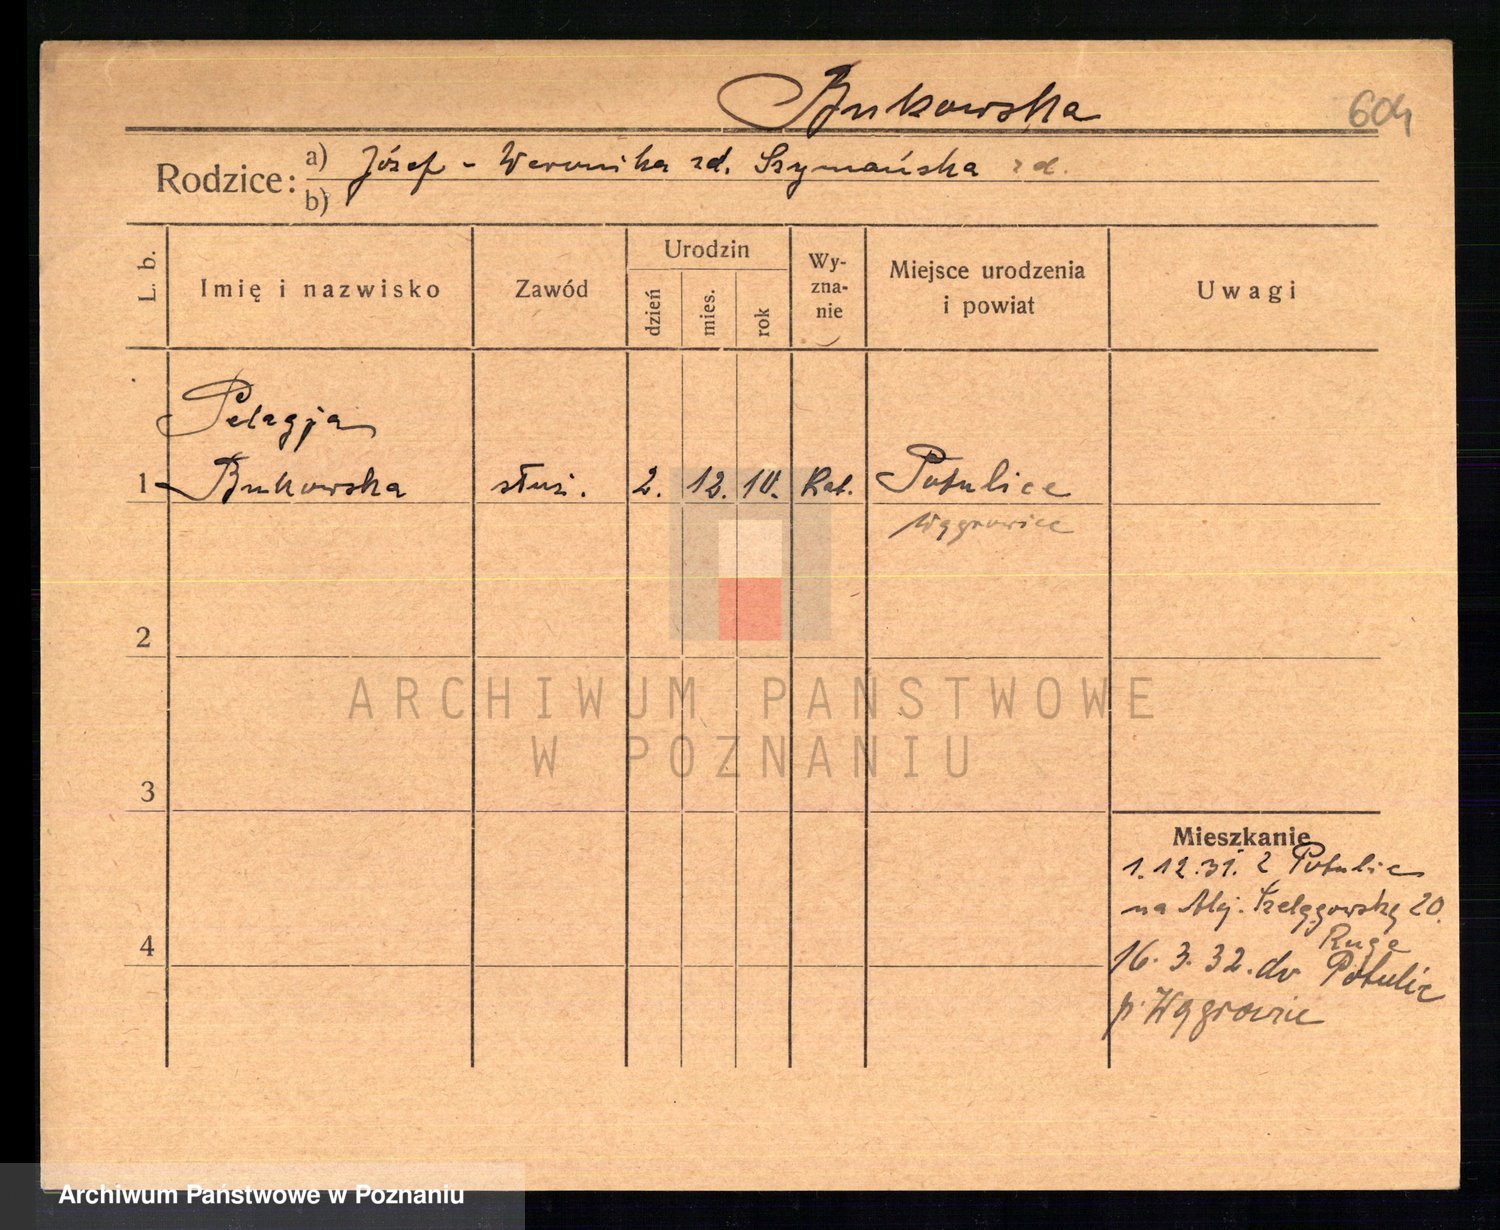 Bukowska 604
Rodzice: a) Józef - Weronika zd. Szymańska zd.
b)
L. b.
Imię i nazwisko
Zawód
Urodzin
dzień
mies.
rok
Wy-
zna-
nie
Miejsce urodzenia
i powiat
Uwagi
Pelagja
1 Bukowska służ. 2. 12. 10. Kat. Potulice
Wągrowiec
2
ARCHIWUM PAŃSTWOWE
W POZNANIU
3
Mieszkanie
1.12.31. z Potulic
na Alej. Szelągowską 20.
4
16.3.32. do Potulic
p. Wągrowiec
Archiwum Państwowe w Poznaniu